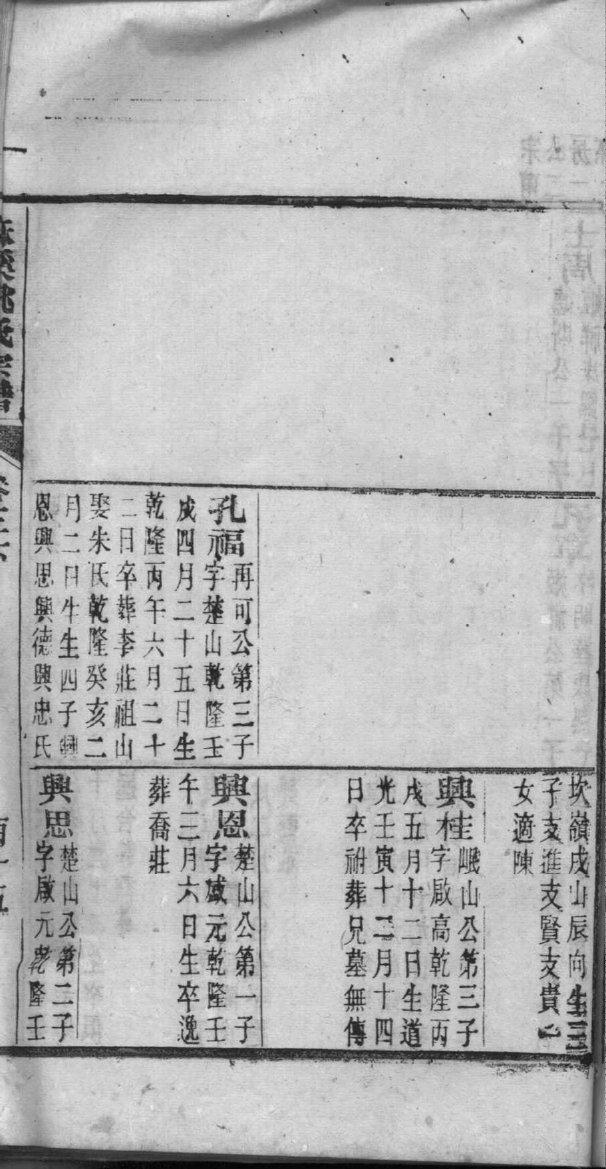 孔福再可公第三子
元字楚山乾隆壬
戌四月二十五日生
乾隆丙午六月二十
二日卒葬李莊祖山
娶朱氏乾隆癸亥二
月二日生生四子興
恩興思興德興忠氏
坎嶺戌山辰向生三
子支進支賢支貴一
女適陳
興桂峨山公第三子
字啟高乾隆丙
戌五月十二日生道
光壬寅十二月十四
日卒祔葬兄墓無傳
興恩楚山公第一子
字啟元乾隆壬
午三月六日生卒逸
葬喬莊
興思楚山公第二子
字啟元乾隆壬
沈氏宗譜